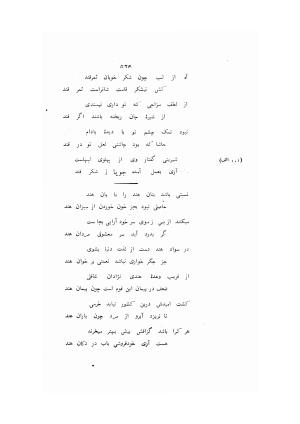 ۵۲۶
آه از لب چون شکر خوبان ثمرقند
کش نیشکر قامت شانراست ثمر قند
از لطف مزاجی که تو داری نپسندی
از شیرهٔ جان ریخته باشند اگر قند
نبود نمک چشم تو با دیدهٔ بادام
حاشا که بود چاشنی لعل تو در قند
شیرینی گفتار وی از پهلوی لبهاست
آری بعمل آمده جویا ز شکر قند
نسبتی باشد بتان هند را با بان هند
حاصلی نبود بجز خون خوردن از میزان هند
میکند از بس ز موی سر خود آرایی بجاست
گر بدزد آید سر معشوق مردان هند
در سواد هند دست از لذت دنیا بشوی
جز جگر خواری نباشد نعمتی بر خوان هند
از فریب وعدهٔ هندی نژادان غافلی
ضعف در پیمان این قوم است چون پیمان هند
کشت امیدش درین کشور نیابد خرمی
تا نریزد آبرو از مرد چون باران هند
هر کرا باشد گزافش بیش بهتر میخرند
هست آری خودفروشی باب در دکان هند